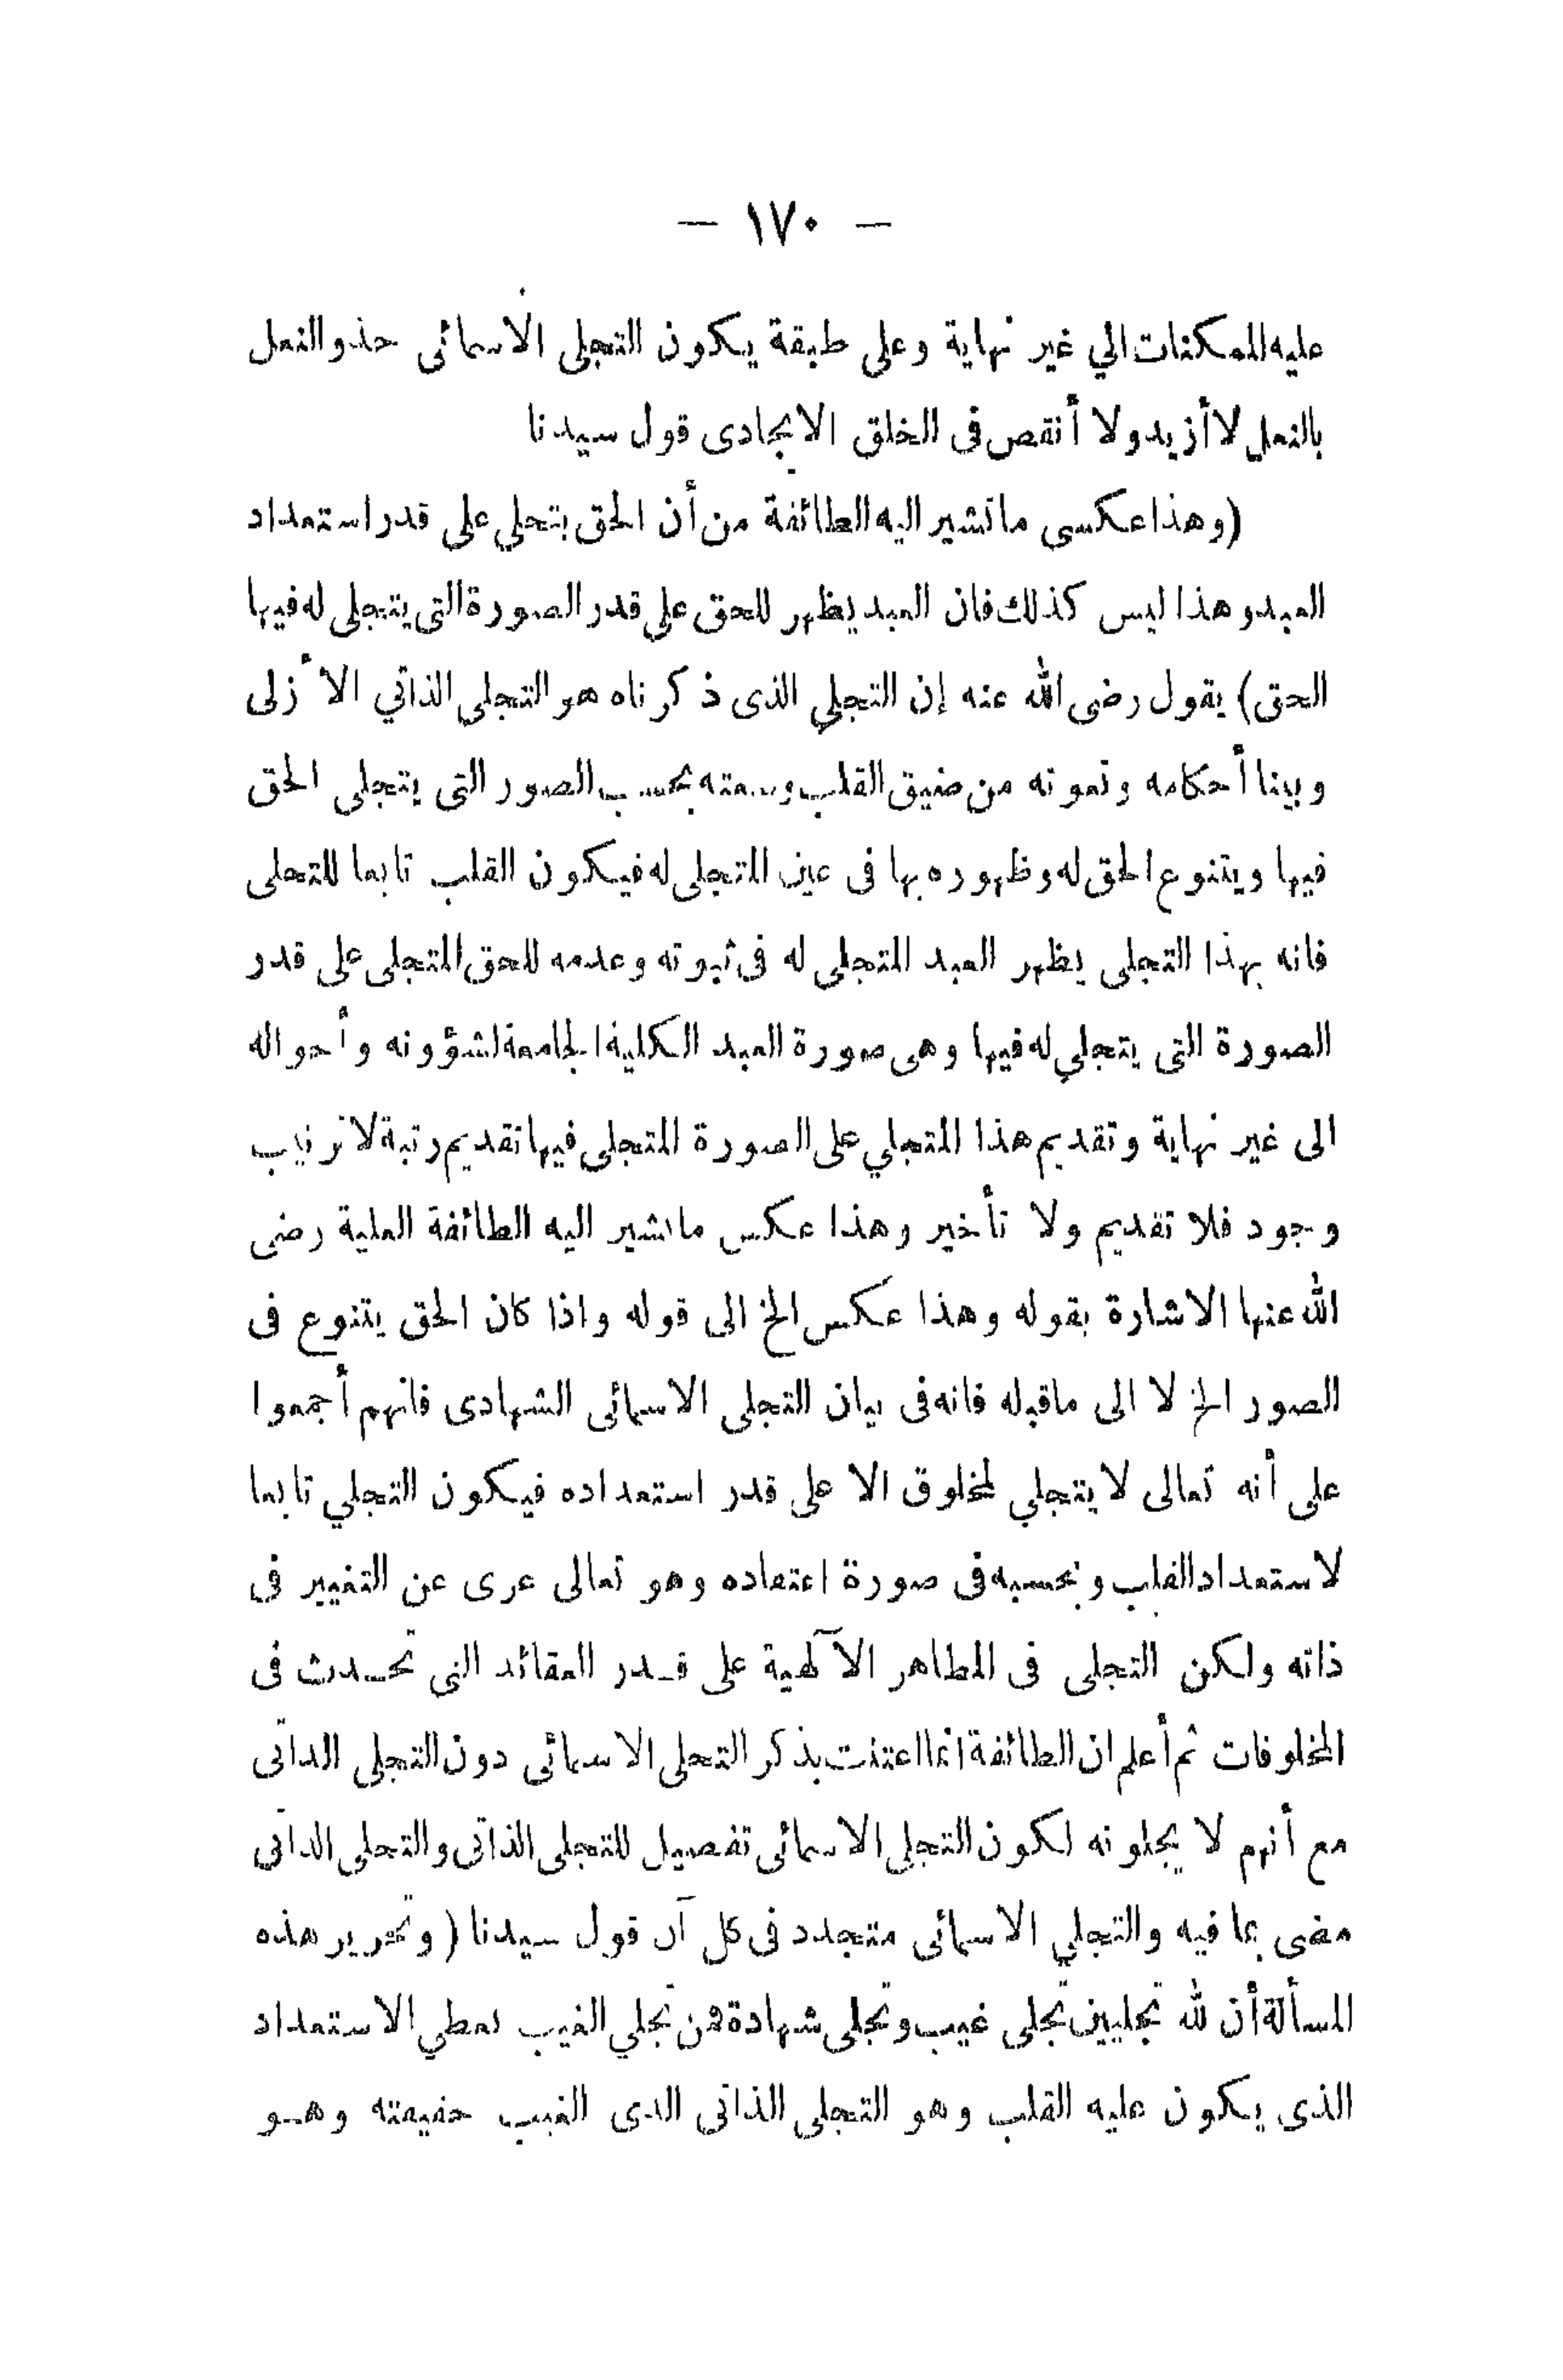 — ١٧٠ —
عليه الممكنات الي غير نهاية وعلى طبقة يكون التجلى الأسمائى حذو النعل
بالنعل لا أزيد ولا أنقص فى الخلق الايجادى قول سيدنا
(وهذا عكسى ما تشير اليه الطائفة من أن الحق يتجلي على قدر استعداد
العبد وهذا ليس كذلك فان العبد يظهر للحق على قدر الصورة التى يتجلى له فيها
الحق) يقول رضى الله عنه إن التجلي الذى ذكرناه هو التجلى الذاتي الأزلى
وبينا أحكامه ونعوته من ضيق القلب وسعته بحسب الصور التى يتجلى الحق
فيها ويتنوع الحق له وظهوره بها فى عين المتجلى له فيكون القلب تابعا للتجلى
فانه بهذا التجلى يظهر العبد المتجلى له فى ثبوته وعدمه للحق المتجلى على قدر
الصورة التى يتجلي له فيها وهى صورة العبد الكلية الجامعة لشؤونه وأحواله
الى غير نهاية وتقديم هذا المتجلي على الصورة المتجلى فيها تقديم رتبة لا ترتيب
وجود فلا تقديم ولا تأخير وهذا عكس ما تشير اليه الطائفة العلية رضى
الله عنها الاشارة بقوله وهذا عكس الخ الى قوله واذا كان الحق يتنوع فى
الصور الخ لا الى ماقبله فانه فى بيان التجلى الاسمائى الشهادى فانهم أجمعوا
على أنه تعالى لا يتجلي لمخلوق الا على قدر استعداده فيكون التجلي تابعا
لاستعداد القلب وبحسبه فى صورة اعتقاده وهو تعالى عرى عن التغيير فى
ذاته ولكن التجلى فى المظاهر الآلهية على قـدر العقائد التى تحـدث فى
المخلوقات ثم أعلم ان الطائفة انما اعتنت بذكر التجلى الاسمائى دون التجلى الذاتى
مع أنهم لا يجهلونه لكون التجلي الاسمائى تفصيل للتجلى الذاتى والتجلى الذاتى
مضى بما فيه والتجلي الاسمائى متجدد فى كل آن قول سيدنا (وتحرير هذه
المسألة أن لله تجليين تجلى غيب وتجلى شهادة فمن تجلي الغيب يعطي الاستعداد
الذى يكون عليه القلب وهو التجلى الذاتى الذى الغيب حقيقته وهـو